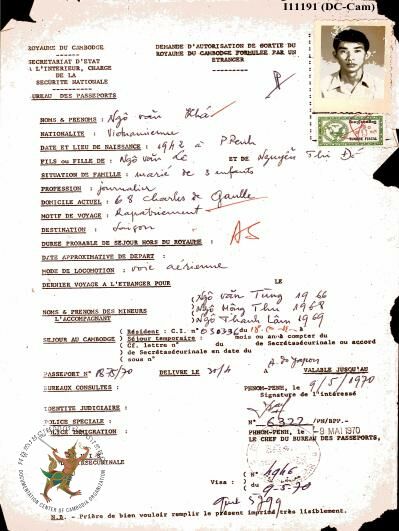 I11191 (DC-Cam)
ROYAUME DU CAMBODGE
SECRETARIAT D'ETAT
A L'INTERIEUR, CHARGE
DE LA
SECURITE NATIONALE
BUREAU DES PASSEPORTS
DEMANDE D'AUTORISATION DE SORTIE DU
ROYAUME DU CAMBODGE FORMULEE PAR UN
ETRANGER
NOMS & PRENOMS : Ngô văn Khá
NATIONALITE : Vietnamienne
DATE ET LIEU DE NAISSANCE : 1942 à P. Penh
FILS ou FILLE DE : Ngô văn Lê ET DE Nguyễn Thi Dê
SITUATION DE FAMILLE : marié de 3 enfants
PROFESSION : journalier
DOMICILE ACTUEL : 68 charles de Gaulle
MOTIF DE VOYAGE : Rapatriement
DESTINATION : Saigon
DUREE PROBABLE DE SEJOUR HORS DU ROYAUME : AS
DATE APPROXIMATIVE DE DEPART :
MODE DE LOCOMOTION : voie aérienne
DERNIER VOYAGE A L'ETRANGER POUR LE
NOMS & PRENOMS DES MINEURS
L'ACCOMPAGNANT
Ngô văn Tung 1966
Ngô Hông Thu 1968
Ngô Thanh Lâm 1969
SEJOUR AU CAMBODGE
Résident : C.I. n° 030336 du
Séjour temporaire : mois ou an à compter du
Cf. lettre n° du de Secrétaséurinale ou accord
de Secrétaséurinale en date du
sous n°
PASSEPORT N° DELIVRE LE 30/4 A VALABLE JUSQU'AU
BUREAUX CONSULTES : PHNOM-PENH, le 9/5/1970
Signature de l'intéressé
IDENTITE JUDICIAIRE :
POLICE SPECIALE :
POLICE IMMIGRATION :
N° 6322 /PN/BPP.-
PHNOM-PENH, le -9 MAI 1970
LE CHEF DU BUREAU DES PASSEPORTS,
Visa : N° 4946
du 9-5-70
DOCUMENTATION CENTER OF CAMBODIA ORGANIZATION
N.B - Prière de bien vouloir remplir le présent imprimé très lisiblement.